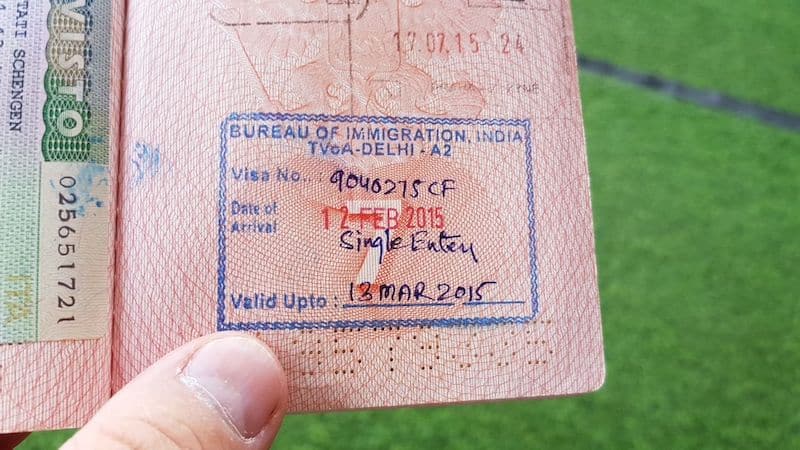 STATI SCHENGEN
VISTO
025651721
17.07.15 24
BUREAU OF IMMIGRATION, INDIA
TVoA-DELHI - A2
Visa No.. : 9040275CF
Date of Arrival 12 FEB 2015
Single Entry
7
Valid Upto : 13 MAR 2015